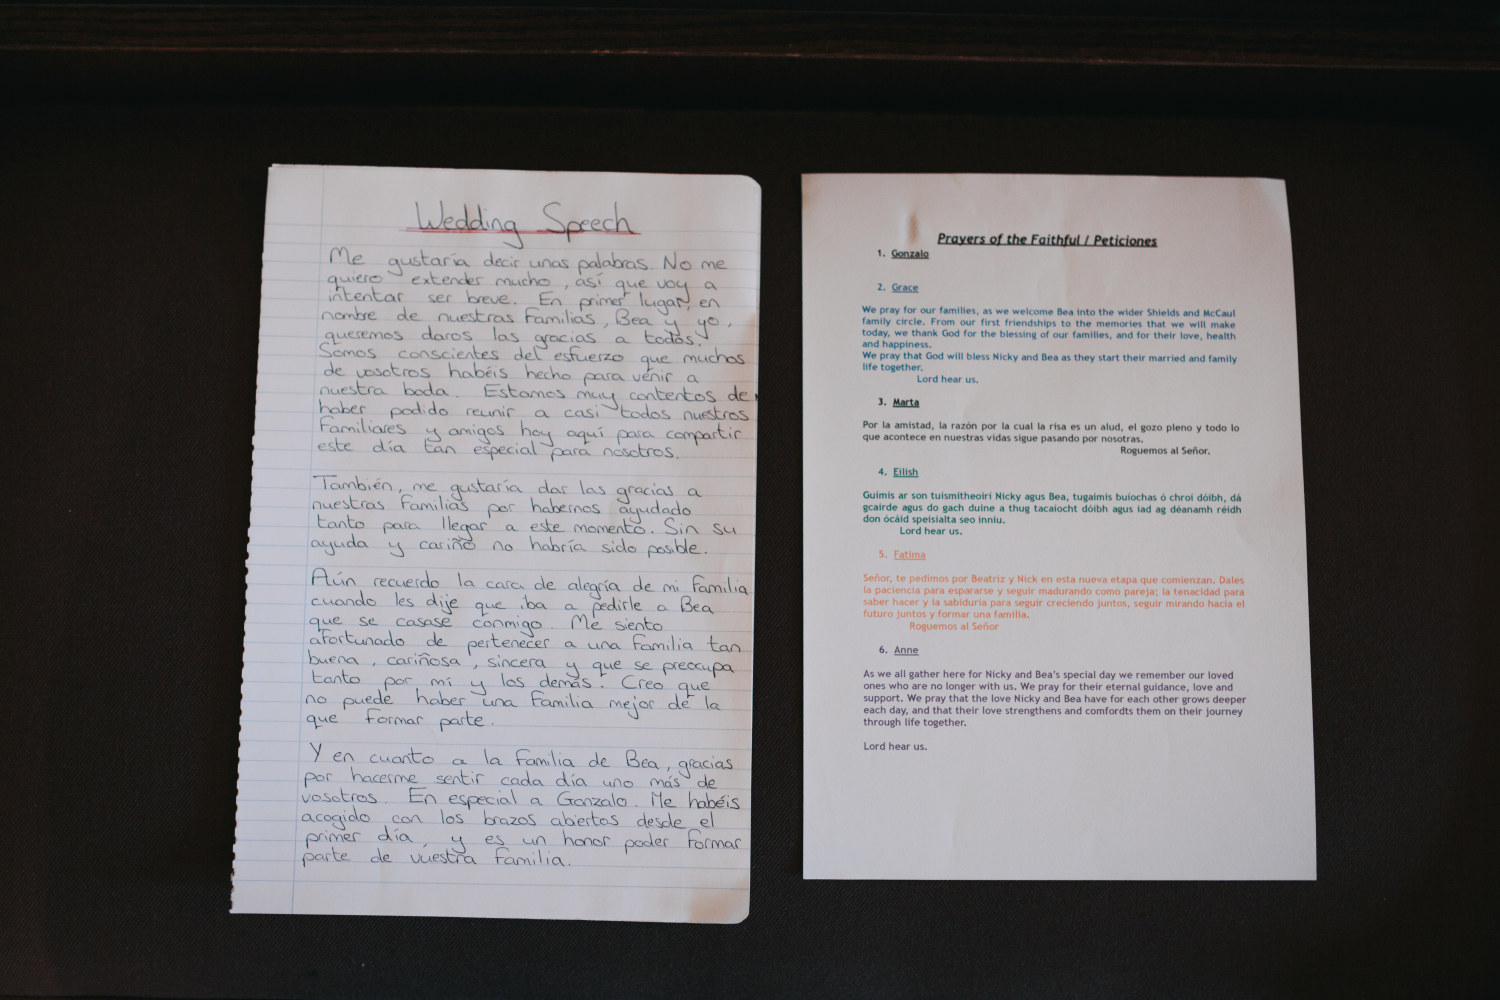 Wedding Speech
Me gustaría decir unas palabras. No me
quiero extender mucho, así que voy a
intentar ser breve. En primer lugar, en
nombre de nuestras familias, Bea y yo,
queremos daros las gracias a todos.
Somos conscientes del esfuerzo que muchos
de vosotros habéis hecho para venir a
nuestra boda. Estamos muy contentos de
haber podido reunir a casi todos nuestros
familiares y amigos hoy aquí para compartir
este día tan especial para nosotros.
También, me gustaría dar las gracias a
nuestras familias por habernos ayudado
tanto para llegar a este momento. Sin su
ayuda y cariño no habría sido posible.
Aún recuerdo la cara de alegría de mi familia
cuando les dije que iba a pedirle a Bea
que se casase conmigo. Me siento
afortunado de pertenecer a una familia tan
buena, cariñosa, sincera y que se preocupa
tanto por mí y los demás. Creo que
no puede haber una familia mejor de la
que formar parte.
Y en cuanto a la familia de Bea, gracias
por hacerme sentir cada día uno más de
vosotros. En especial a Gonzalo. Me habéis
acogido con los brazos abiertos desde el
primer día, y es un honor poder formar
parte de vuestra familia.
Prayers of the Faithful / Peticiones
1. Gonzalo
2. Grace
We pray for our families, as we welcome Bea into the wider Shields and McCaul
family circle. From our first friendships to the memories that we will make
today, we thank God for the blessing of our families, and for their love, health
and happiness.
We pray that God will bless Nicky and Bea as they start their married and family
life together.
Lord hear us.
3. Marta
Por la amistad, la razón por la cual la risa es un alud, el gozo pleno y todo lo
que acontece en nuestras vidas sigue pasando por nosotras.
Roguemos al Señor.
4. Eilish
Guimis ar son tuismitheoirí Nicky agus Bea, tugaimis buíochas ó chroí dóibh, dá
gcairde agus do gach duine a thug tacaíocht dóibh agus iad ag déanamh réidh
don ócáid speisialta seo inniu.
Lord hear us.
5. Fatima
Señor, te pedimos por Beatriz y Nick en esta nueva etapa que comienzan. Dales
la paciencia para espararse y seguir madurando como pareja; la tenacidad para
saber hacer y la sabiduría para seguir creciendo juntos, seguir mirando hacia el
futuro juntos y formar una familia.
Roguemos al Señor
6. Anne
As we all gather here for Nicky and Bea's special day we remember our loved
ones who are no longer with us. We pray for their eternal guidance, love and
support. We pray that the love Nicky and Bea have for each other grows deeper
each day, and that their love strengthens and comfordts them on their journey
through life together.
Lord hear us.